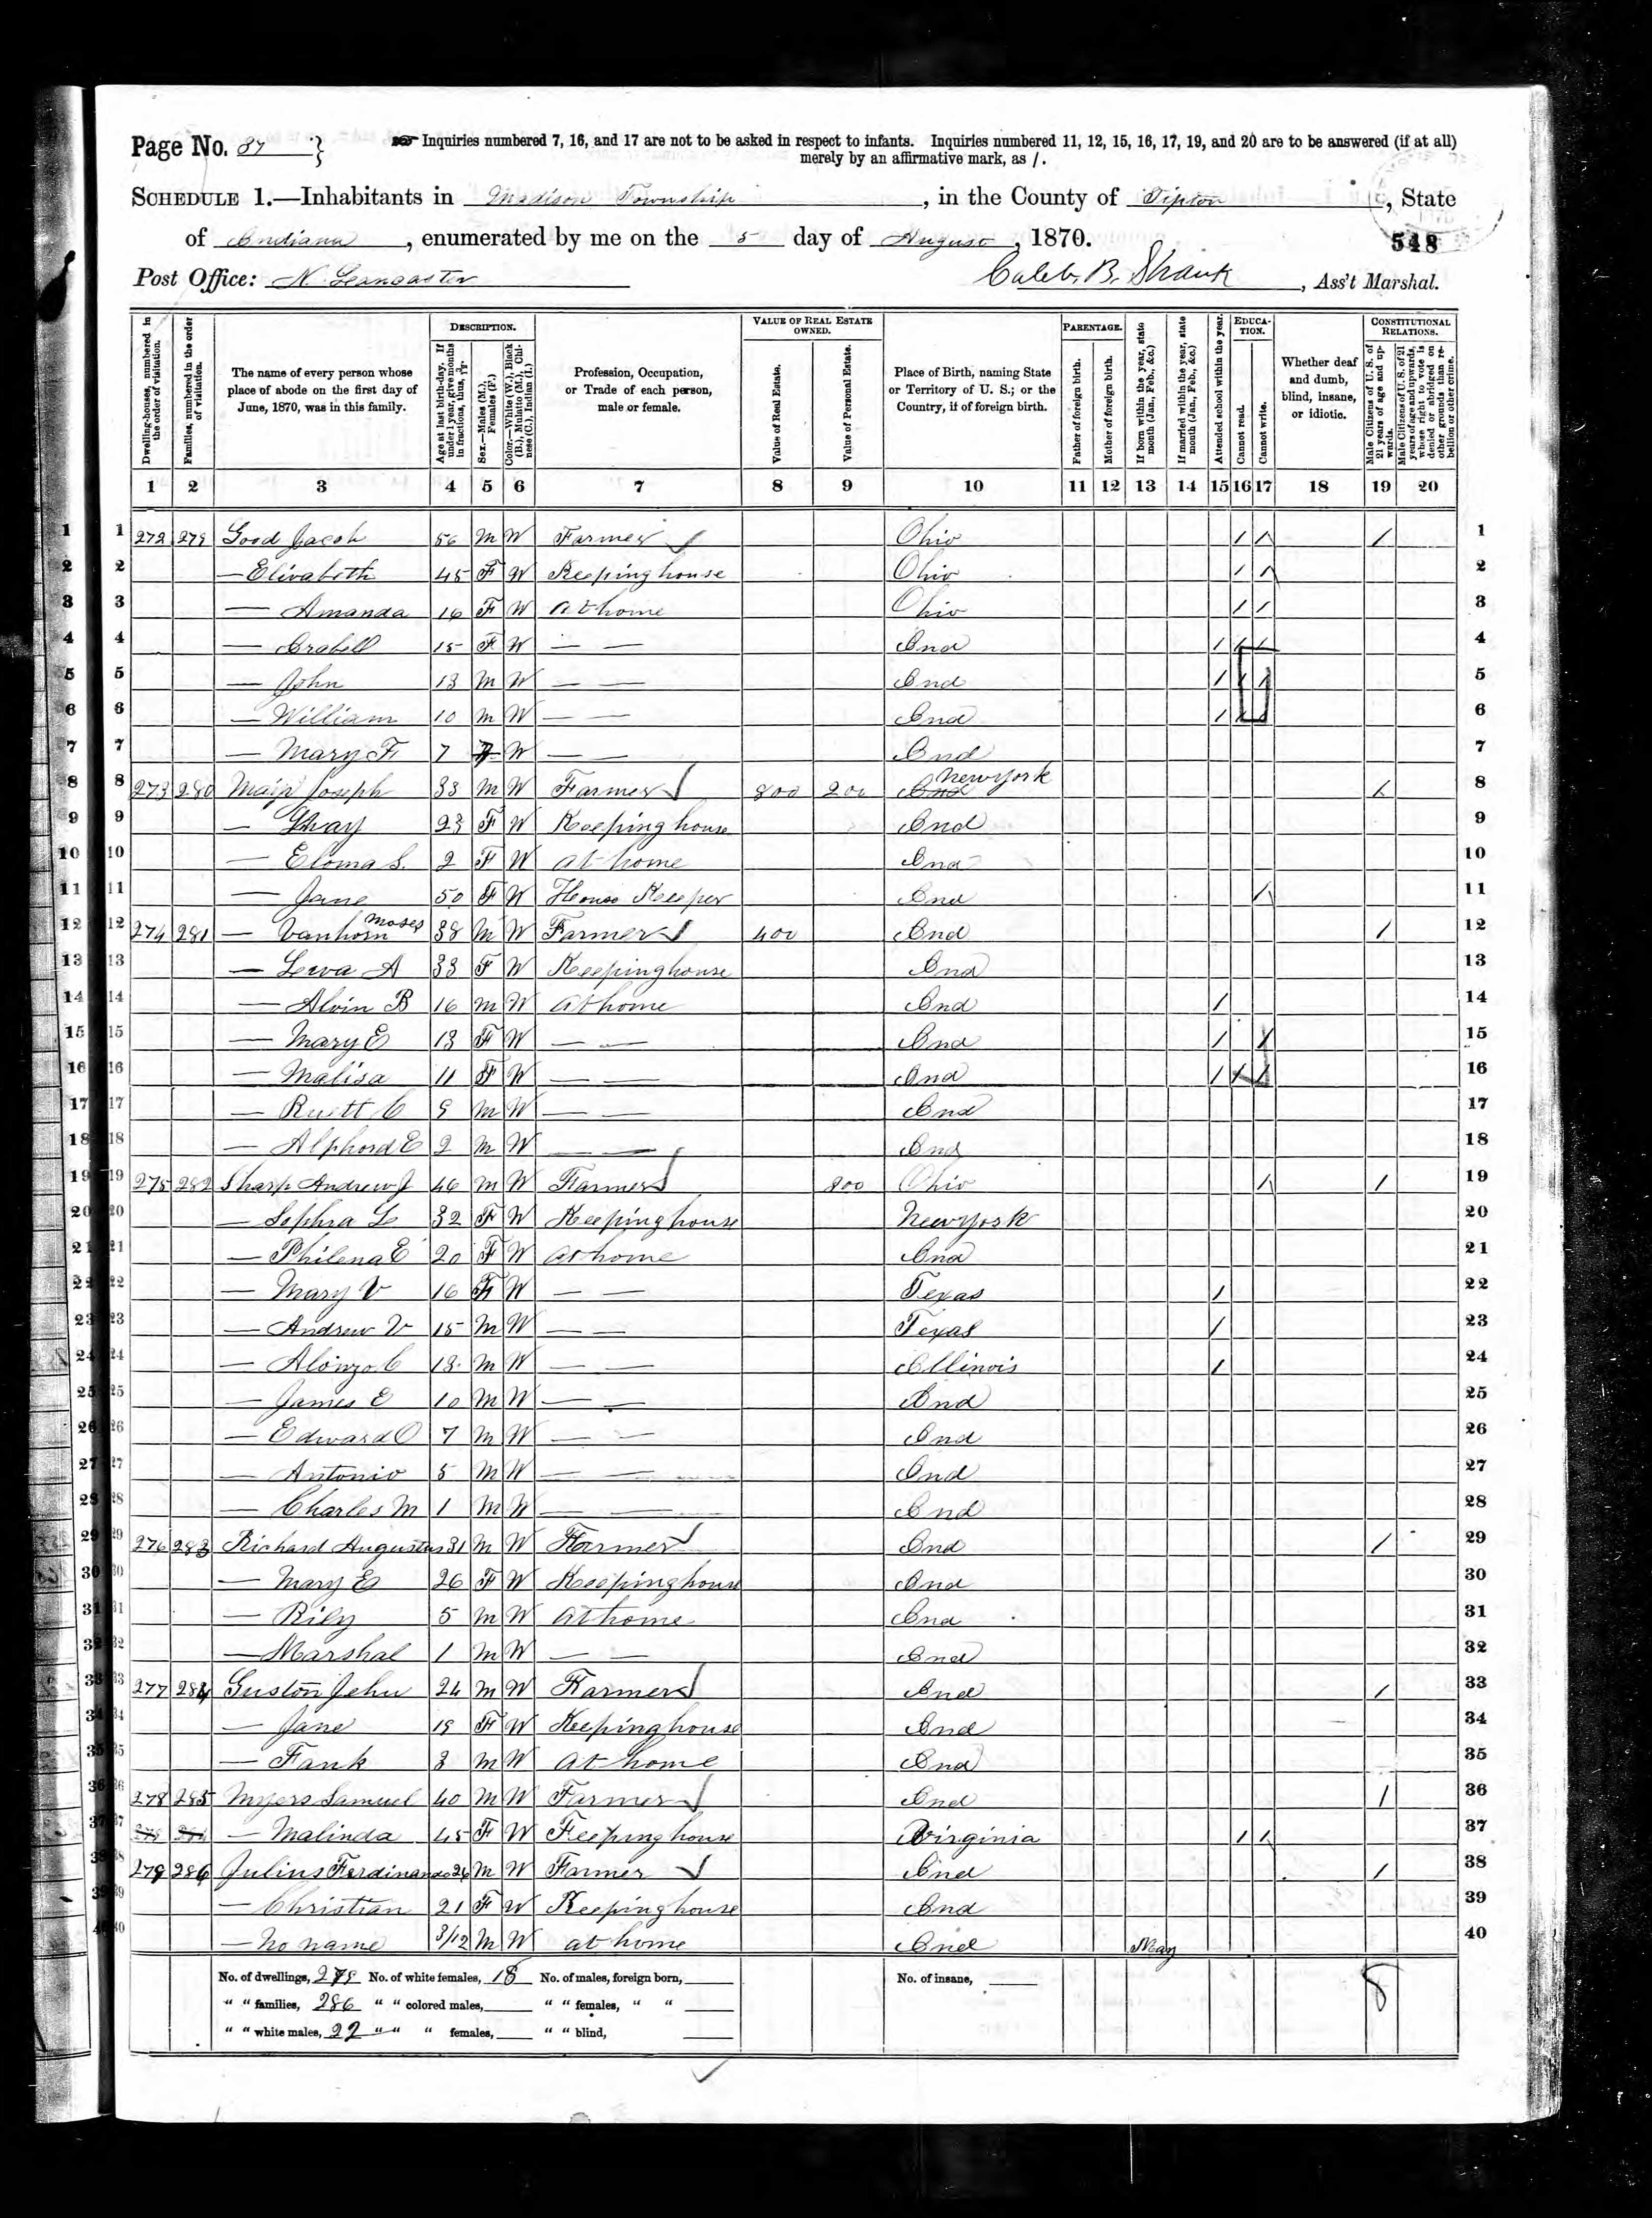 Page No. 37
Inquiries numbered 7, 16, and 17 are not to be asked in respect to infants. Inquiries numbered 11, 12, 15, 16, 17, 19, and 20 are to be answered (if at all)
merely by an affirmative mark, as /.
SCHEDULE 1.—Inhabitants in Madison Township, in the County of Tipton, State
of Indiana, enumerated by me on the 5 day of August, 1870.
548
Post Office: N. Lancaster Caleb. B. Shank, Ass't Marshal.
Dwelling-houses, numbered in the order of visitation.
Families, numbered in the order of visitation.
The name of every person whose place of abode on the first day of June, 1870, was in this family.
DESCRIPTION.
Age at last birth-day. If under 1 year, give months in fractions, thus, 3/12.
Sex.—Males (M.), Females (F.)
Color.—White (W.), Black (B.), Mulatto (M.), Chinese (C.), Indian (I.)
Profession, Occupation, or Trade of each person, male or female.
VALUE OF REAL ESTATE OWNED.
Value of Real Estate.
Value of Personal Estate.
Place of Birth, naming State or Territory of U. S.; or the Country, if of foreign birth.
PARENTAGE.
Father of foreign birth.
Mother of foreign birth.
If born within the year, state month (Jan., Feb., &c.)
If married within the year, state month (Jan., Feb., &c.)
Attended school within the year.
EDUCATION.
Cannot read.
Cannot write.
Whether deaf and dumb, blind, insane, or idiotic.
CONSTITUTIONAL RELATIONS.
Male Citizens of U. S. of 21 years of age and upwards.
Male Citizens of U. S. of 21 years of age and upwards, whose right to vote is denied or abridged on other grounds than rebellion or other crime.
1 2 3 4 5 6 7 8 9 10 11 12 13 14 15 16 17 18 19 20
1 1 272 279 Good Jacob 56 M W Farmer Ohio / / / 1
2 2 — Elizabeth 45 F W Keeping house Ohio / / 2
3 3 — Amanda 16 F W at home Ohio / / 3
4 4 — 15 F W — — Ind / / / 4
5 5 — John 13 M W — — Ind / / / 5
6 6 — William 10 M W — — Ind / / / 6
7 7 — Mary F 7 F W — — Ind 7
8 8 273 280 Joseph 33 M W Farmer 800 200 Ind New York / 8
9 9 — 23 F W Keeping house Ind 9
10 10 — Eloma S. 2 F W at home Ind 10
11 11 — Jane 50 F W House Keeper Ind / 11
12 12 274 281 — Vanhorn Moses 38 M W Farmer 400 Ind / 12
13 13 — Leva A 33 F W Keeping house Ind 13
14 14 — Alvin B 16 M W at home Ind / 14
15 15 — Mary E 13 F W — — Ind / / 15
16 16 — Malisa 11 F W — — Ind / / / 16
17 17 — C 9 M W — — Ind 17
18 18 — Alphord E 2 M W — — Ind 18
19 19 275 282 Sharp Andrew J 46 M W Farmer 800 Ohio / / 19
20 20 — Sophia L 32 F W Keeping house New York 20
21 21 — Philena E 20 F W at home Ind 21
22 22 — Mary V 16 F W — — Texas / 22
23 23 — Andrew V 15 M W — — Texas / 23
24 24 — Alonzo C 13 M W — — Illinois / 24
25 25 — James E 10 M W — — Ind 25
26 26 — Edward O 7 M W — — Ind 26
27 27 — Antonio 5 M W — — Ind 27
28 28 — Charles M 1 M W — — Ind 28
29 29 276 283 Richard Augustus 31 M W Farmer Ind / 29
30 30 — Mary E 26 F W Keeping house Ind 30
31 31 — Rily 5 M W at home Ind 31
32 32 — Marshal 1 M W — — Ind 32
33 33 277 284 Guston John 24 M W Farmer Ind / 33
34 34 — Jane 19 F W Keeping house Ind 34
35 35 — Fank 3 M W at home Ind 35
36 36 278 285 Myers Samuel 40 M W Farmer Ind / 36
37 37 — Malinda 45 F W Keeping house Virginia / / 37
38 38 279 286 Julius Ferdinando 26 M W Farmer Ind / 38
39 39 — Christian 21 F W Keeping house Ind 39
40 40 — No name 3/12 M W at home Ind May 40
No. of dwellings, 279 No. of white females, 18 No. of males, foreign born, No. of insane, 8
" " families, 286 " " colored males, " " females, " "
" " white males, 22 " " " females, " " blind,